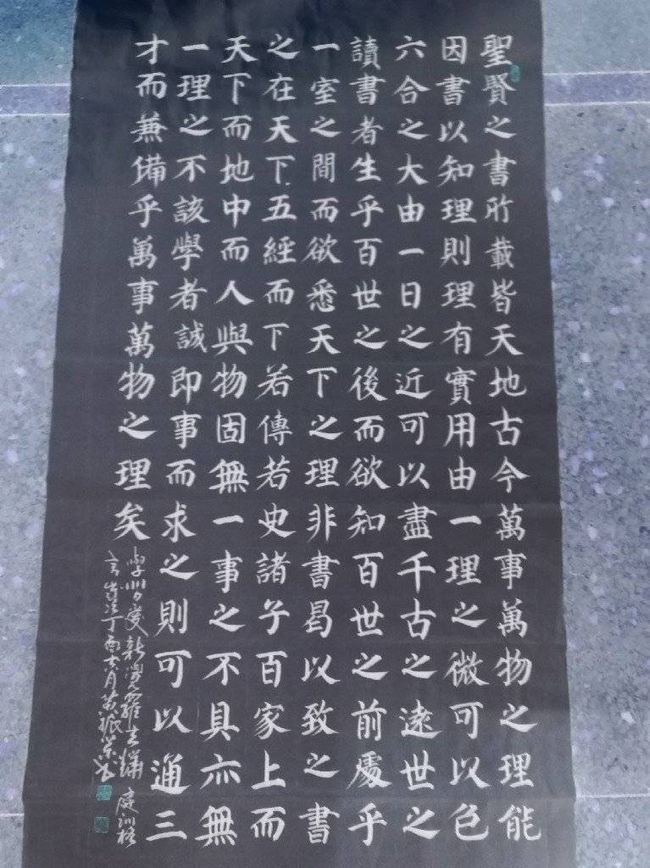 聖賢之書所載皆天地古今萬事萬物之理能
因書以知理則理有實用由一理之微可以色
六合之大由一日之近可以盡千古之遠世之
讀書者生乎百世之後而欲知百世之前處乎
一室之間而欲悉天下之理非書曷以致之書
之在天下五經而下若傳若史諸子百家上而
天下而地中而人與物固無一事之不具亦無
一理之不該學者誠即事而求之則可以通三
才而兼備乎萬事萬物之理矣
學習愛新覺羅玄燁庭訓格
言歲次丁酉六月